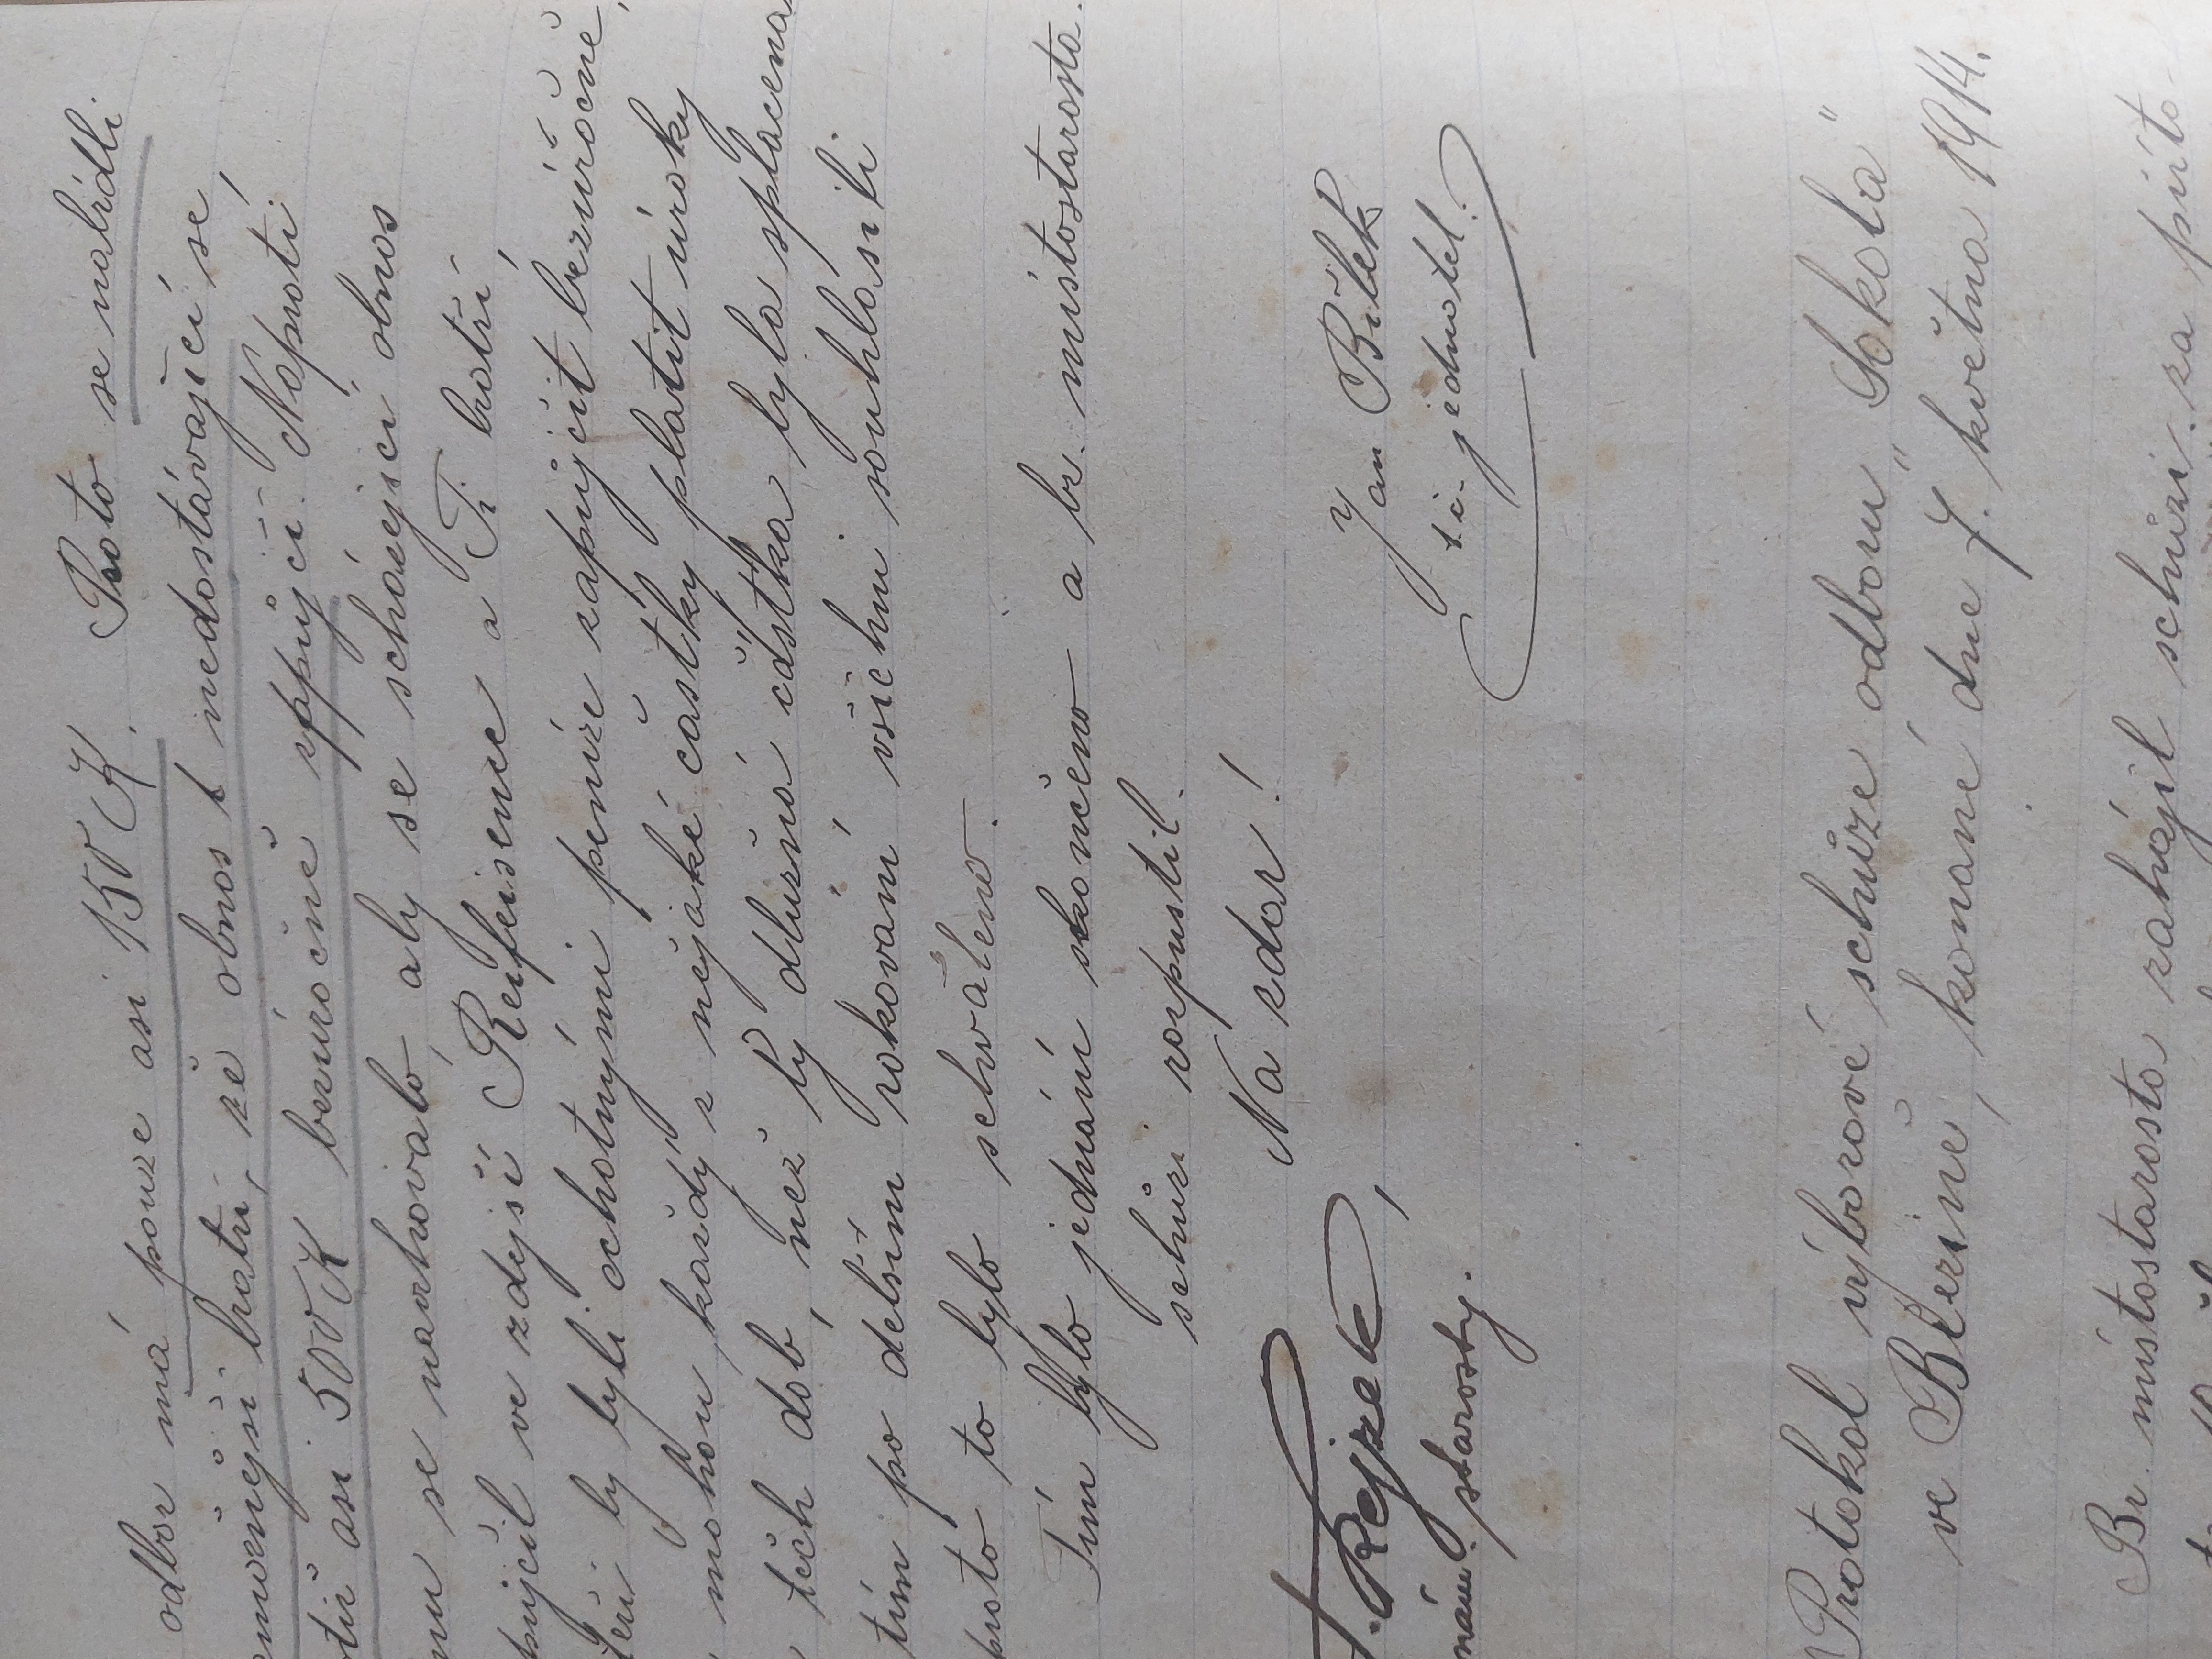 odbor má pouze asi 150 K. Proto se nabídli
zámožnější bratři, že obnos t nedostávající se,
totiž asi 500 K bezúročně zppůjčí. Naproti
se navrhovalo, aby se scházející obnos
vypůjčil ve zdejší Reifeisence a Ti bratří,
kteří by byli ochotnými peníze zapůjčit bezúročně,
mohou každý z nějaké částky platit úroky
těch dob, než by dlužná částka byla splacena.
tím po delším rokování všichni souhlasili
proto to bylo schváleno.
Tím bylo jednání skončeno a br. místostarosta
schůzi rozpustil.
Na zdar!
Jan Bílek
t. č. jednatel.
F. Rejzek,
nám. starosty.
Protokol výborové schůze odboru „Sokola"
ve Březině, konané dne 7. května 1914.
Br. místostarosta zahájil schůzi za příto-